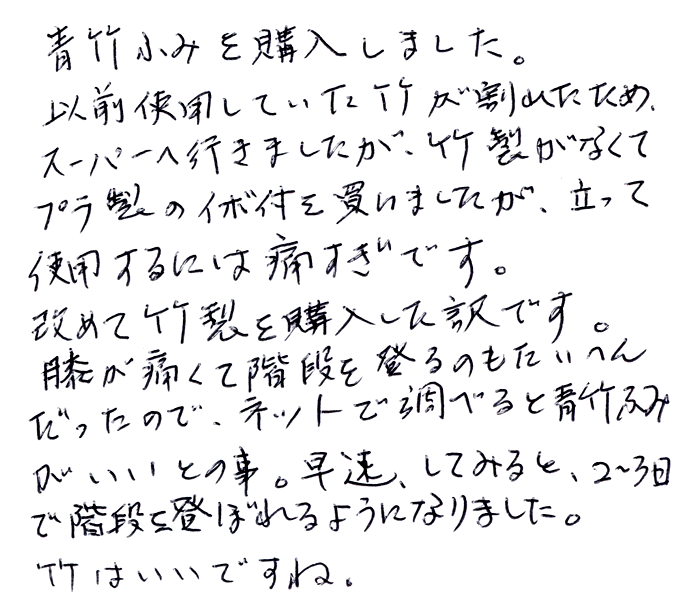 青竹ふみを購入しました。
以前使用していた竹が割れたため、
スーパーへ行きましたが、竹製がなくて
プラ製のイボ付を買いましたが、立って
使用するには痛すぎです。
改めて竹製を購入した訳です。
膝が痛くて階段を登るのもたいへん
だったので、ネットで調べると青竹ふみ
がいいとの事。早速、してみると、2~3日
で階段を登ぼれるようになりました。
竹はいいですね。